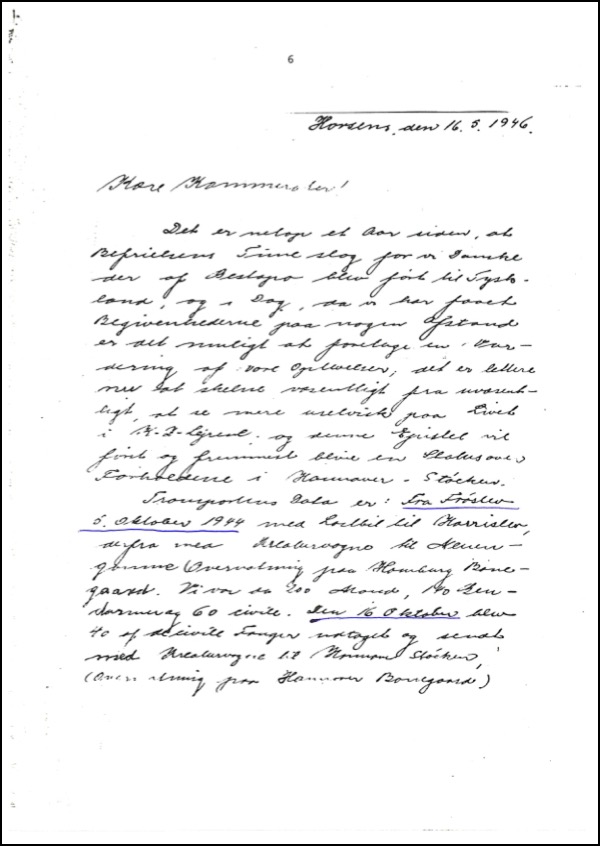 6
Horsens, den 16. 5. 1946.
Kære Kammerater!
Det er netop et Aar siden, at
Befrielsens Time slog for vi Danske
der af Gestapo blev ført til Tysk-
land, og i Dag, da vi har faaet
Begivenhederne paa nogen Afstand
er det muligt at foretage en Vur-
dering af vore Oplevelser; det er lettere
nu at skelne væsentligt fra uvæsent-
ligt, at se mere paa Livet
i K-Z-Lejren. og denne Epistel vil
først og fremmest blive en Status over
Forholdene i Hannover - Stöcken.
Transportens Data er: Fra Frøslev
5. Oktober 1944 med Lastbil til Harrislev,
derfra med Kreaturvogne til Neuen-
gamme Overnatning paa Hamburg Bane-
gaard. Vi var da 200 Mand, 140 Gen-
darmer og 60 civile. Den 16 Oktober blev
40 af de civile Fanger udtaget og sendt
med Kreaturvogne til Hannover Stöcken,
(Overnatning paa Hannover Banegaard)